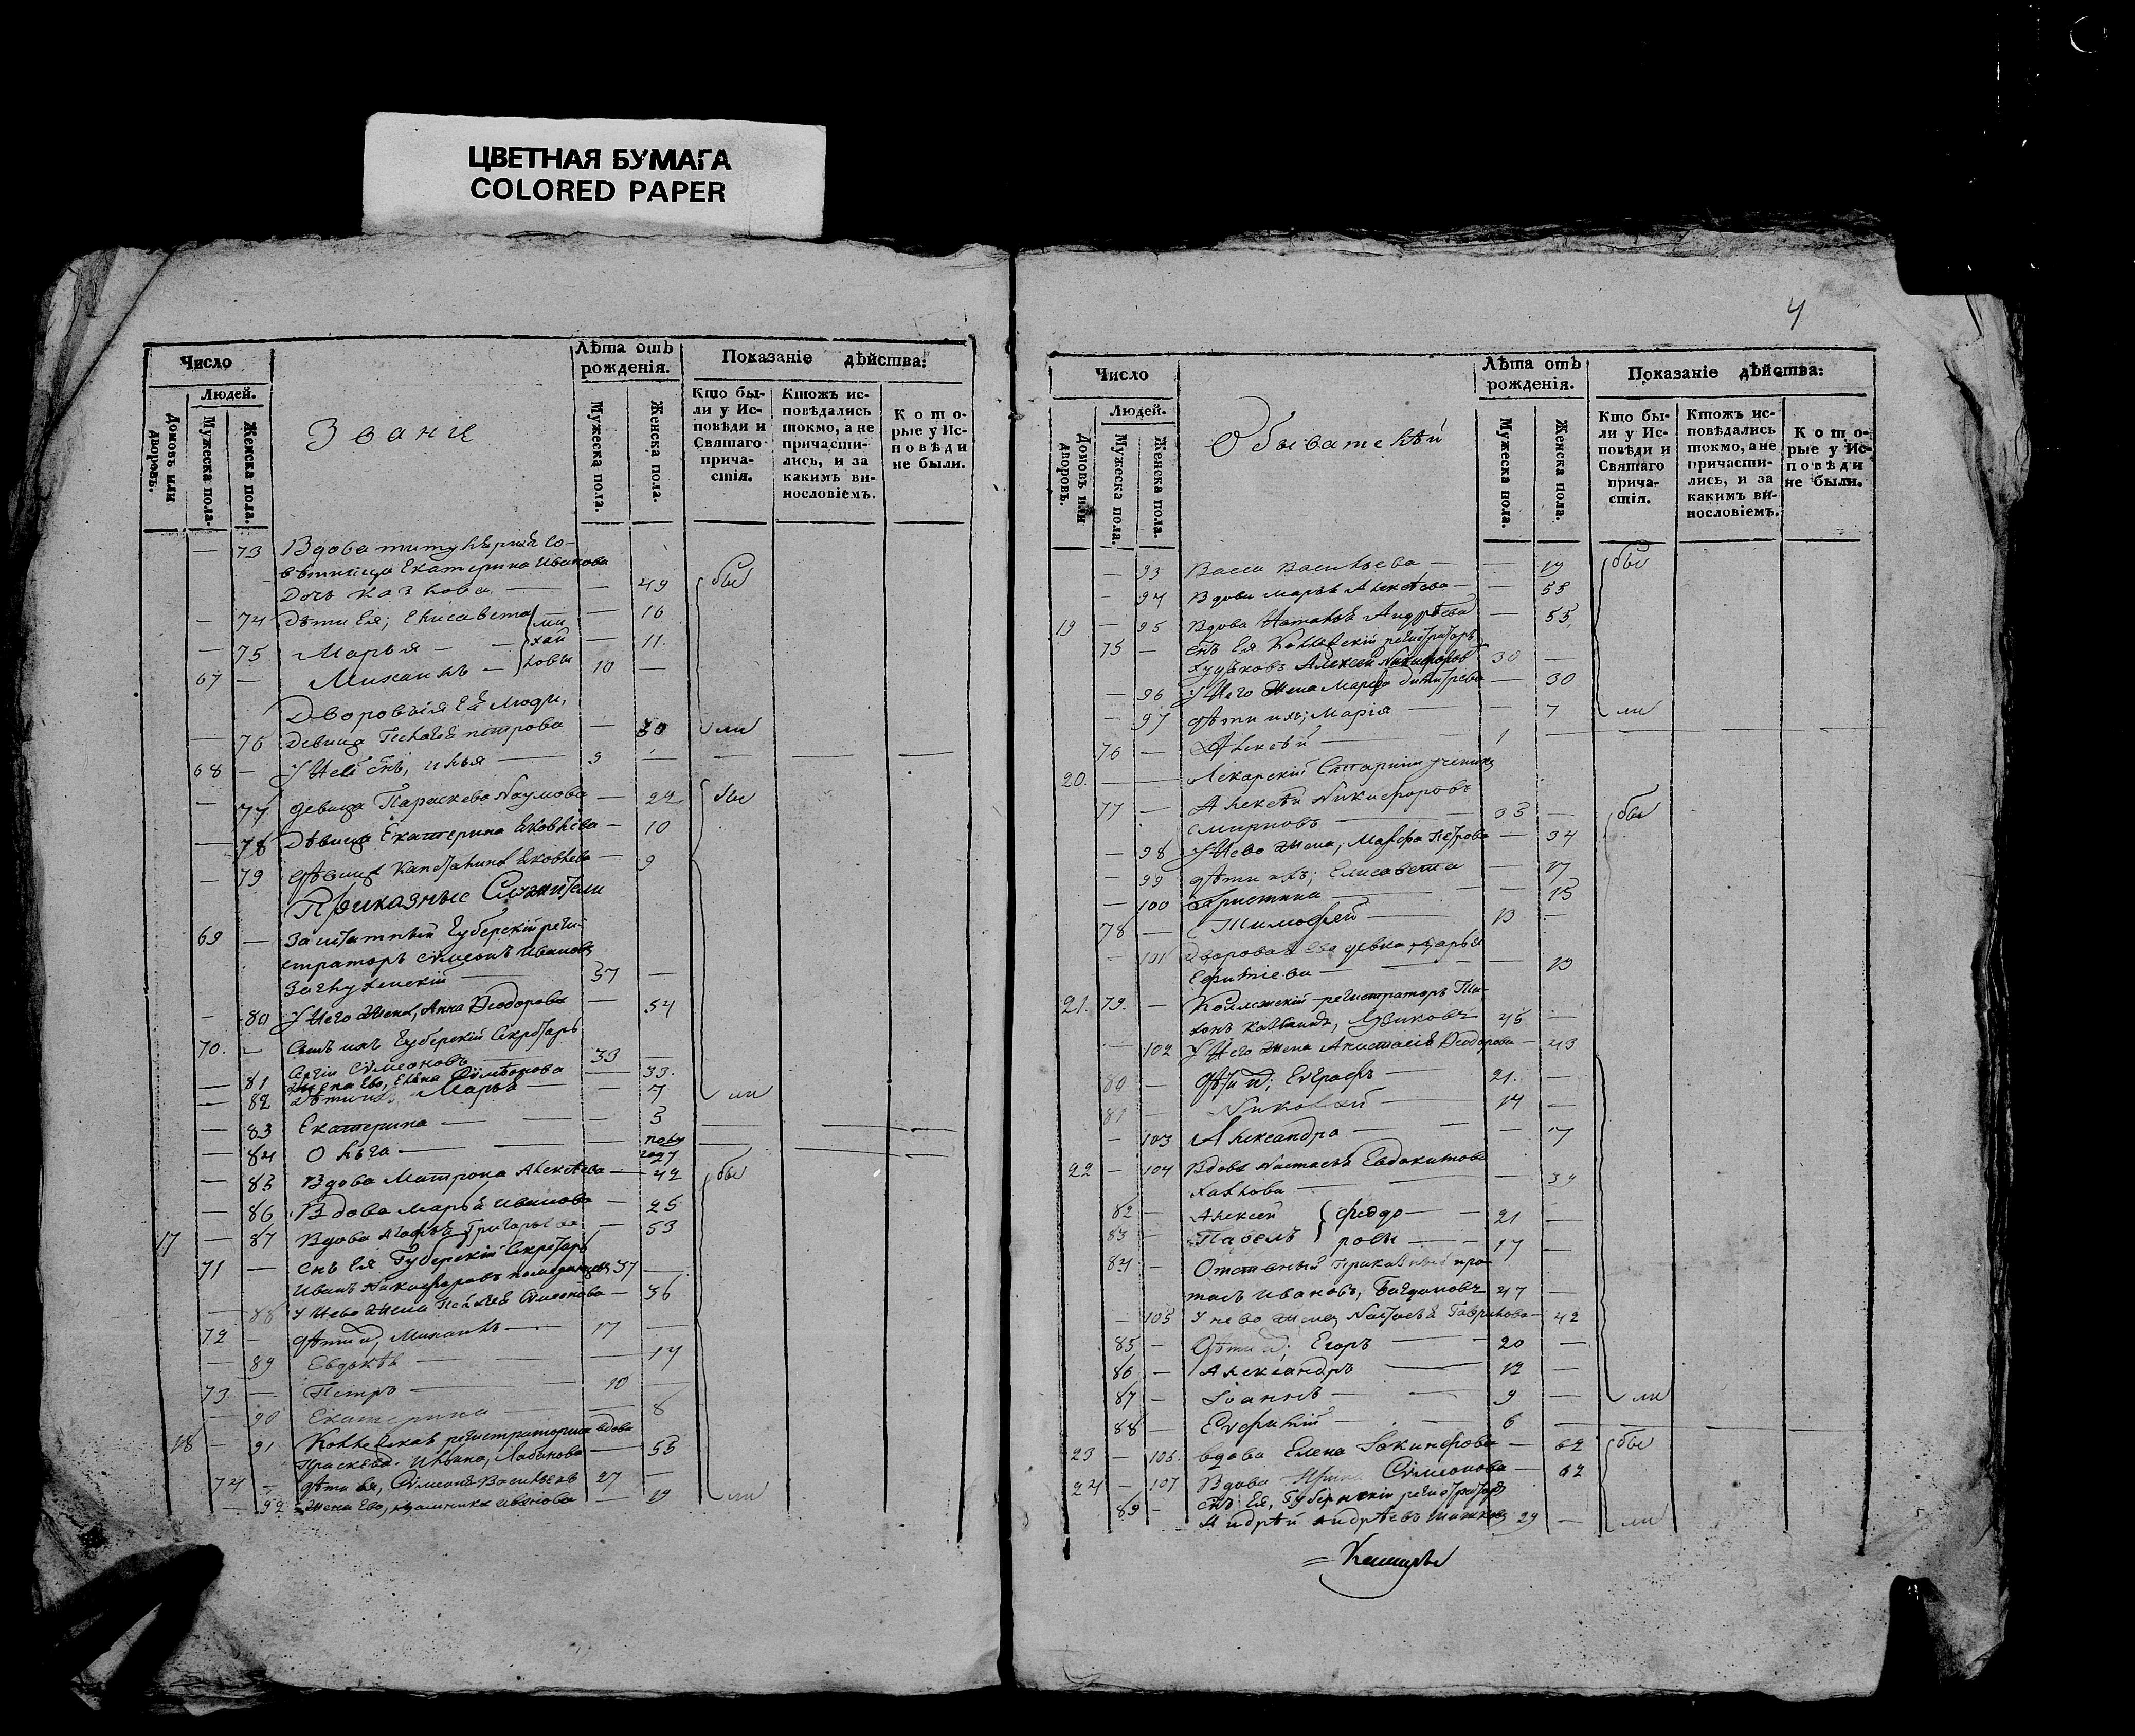 ЦВЕТНАЯ БУМАГА
COLORED PAPER
4
Число
Людей.
Домовъ или дворовъ.
Мужеска пола.
Женска пола.
Званіе
Лѣта отъ рожденія.
Мужеска пола.
Женска пола.
Показаніе дѣйства:
Кто были у Исповѣди и Святаго причастія.
Ктожъ исповѣдались токмо, а не причастились, и за какимъ винословіемъ.
Которые у Исповѣди не были.
— 73 Вдова титулярная со-
вѣтница Екатерина Иванова
дочь — — 49 бы
— 74 Дѣти Ея; Елисавета — 16
— 75 Марья — — 11.
67 — Михаилъ — 10 —
Михайловы
Дворовыя Ея люди,
— 76 Девица Пелагея Петрова — 30 ли
68 — У Ней сынъ, Илья — 9 — — — —
— 77 девица Параскева Наумова — 22 бы
— 78 Дѣвица Екатерина Яковлева — 10
— 79 дѣвица Капетолина Яковлева — 9
Приказные Служители
69 — Заштатный Губерскій реги-
страторъ Симеонъ Ивановъ
— 57 —
— 80 У Него жена, Анна Ѳеодорова — 54
70. — Сынъ ихъ Губерскій Секретарь
Сергій Симеоновъ — 33 —
— 81 жена Его, Елена Симеонова — 33.
— 82 Дѣти ихъ Марья — — 7 ли
— 83 Екатерина — — 5 — — —
— 84 Ольга — — полугода — — —
— 85 Вдова Матрона Алексѣева — 42 бы
— 86 Вдова Марья Иванова — 25
17 — 87 Вдова Агафья Григорьева — 53
71 — сынъ Ея Губерскій Секретарь
Иванъ Никифоровъ 37 —
— 88 У Него жена Пелагея Симеонова — 36
72 — дѣти ихъ, Михаилъ — 17 —
— 89 Евдокія — — 14
73 — Петръ — 10 —
— 90 Екатерина — — 8
18 — 91 Коллежская регистраторша вдова
Параскева Ильина, Лобанова — 55
74 — дѣти Ея, Симеонъ Васильевъ 27 —
— 92 жена Его, Иванова — 19 ли
Число
Людей.
Домовъ или дворовъ.
Мужеска пола.
Женска пола.
Обывателей
Лѣта отъ рожденія.
Мужеска пола.
Женска пола.
Показаніе дѣйства:
Кто были у Исповѣди и Святаго причастія.
Ктожъ исповѣдались токмо, а не причастились, и за какимъ винословіемъ.
Которые у Исповѣди не были.
— 93 Васса Васильева — — 19 бы
— 94 Вдова Марья Алексѣева — — 55
19 — 95 Вдова Наталья Андрѣева — 55
75 — сынъ Ея Коллежскій регистраторъ
Алексей Никифоровъ 30 —
— 96 У Него жена Марѳа Димитрева — 30
— 97 дѣти ихъ; Марія — — 7 ли
76 — Алексѣй — 1 — — — —
20. — — Лекарскій Старшій ученикъ
77 — Алексѣй Никифоровъ
Смирновъ — 33 — бы
— 98 У Него жена, Марѳа Петрова — 34
— 99 дѣти ихъ; Елисавета — 17
— 100 Христина — — 15
78 — Тимофей — 13 —
— 101 Дворовая Его девка Дарья
— — 19
21. 79. — Коллежскій регистраторъ Ти-
хонъ — 45 —
— 102 У Него жена Анастасія Ѳеодорова — 43
80 — Дѣти ихъ; Евграфъ — 21. —
81 — Николай — 14 —
— 103 Александра — — 7
22 — 104 Вдова Настасья Евдокимова
— — 39
82 — Алексей Федоровы — 21 —
83 — Павелъ — 17 —
84 — Отставный Приказный про-
Ивановъ, Богдановъ 47 —
— 105 У него жена Настасья Гаврилова — 42
85 — Дѣти ихъ; Егоръ — 20 —
86 — Александръ — 12 —
87 — Іоаннъ — 9 — ли
88 — Евфимій — 6 — — — —
23 — 106. вдова Елена — 62 бы
24 — 107 Вдова Ирина Симеонова — 62
89 — сынъ Ея, Губернскій регистраторъ
Андрѣй Андрѣевъ 29 — ли